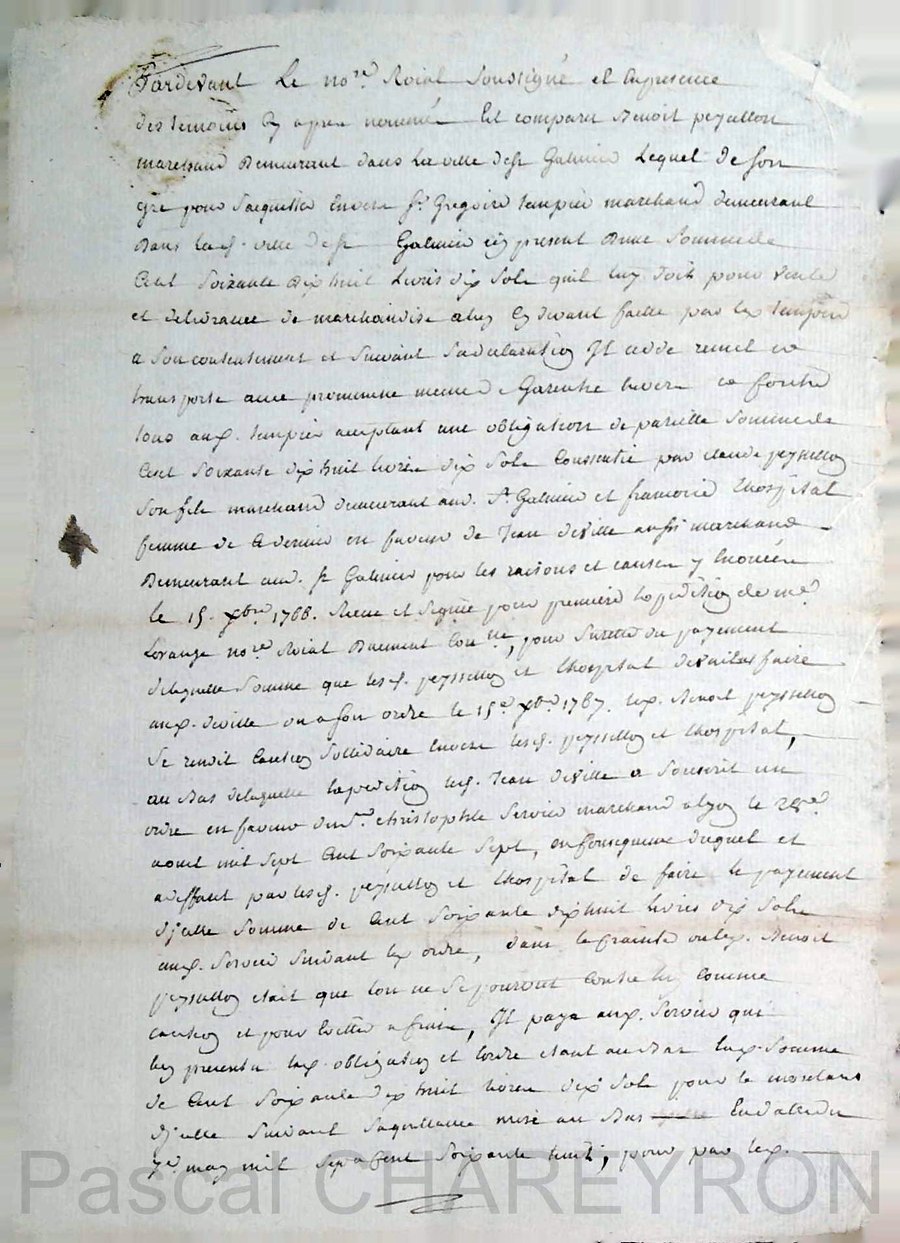 Pardevant Le no.re Roial soussigné et En presence
des temoins Cy apres nommés Est comparu Benoit peyssellon
marchand Demeurant dans La ville de st Galmier Lequel de son
gré pour s'acquitter Envers sr. Gregoire tempier marchand demeurant
Dans lad. ville de st Galmier icy present D'une somme de
Cent soixante Dix huit Livres dix sols quil luy doit pour vente
et delivrance de marchandise a luy Cy devant faitte par led tempier
a son contentement et suivant sa declaration Il cedde remet et
transporte avec promesse de Garentie Envers et contre
tous aud. tempier acceptant une obligation de pareille somme de
Cent soixante dix huit livres dix sols Consentie par claude peyssellon
son fils marchand demeurant aud. st Galmier et francoise L'hospital
femme de Ce dernier en faveur de Jean deville aussi marchand
Demeurant aud. st Galmier pour les raisons et causes y Enoncées
le 15. xbre 1766. Recue et signée pour premiere Expedition de me
Lorange no.re Roial Duement Con.lée, pour suretté du payement
de laquelle somme que lesd. peyssellon et L'hospital devaient faire
aud. deville ou a son ordre le 15e. xbre 1767. led. Benoit peyssellon
se rendit Caution sollidaire Envers lesd. peyssellon et L'hospital,
au Bas de laquelle Expedition led. Jean deville a souscrit un
ordre en faveur du sr. christophle servier marchand a lyon le
aout mil sept Cent soixante sept, en Consequence duquel et
a deffaut par lesd. peyssellon et L'hospital de faire le payement
D'icelle somme de Cent soixante dix huit livres dix sols
aud. servier suivant led ordre, dans la Crainte ou led. Benoit
peyssellon etait que lon ne se pourvut Contre luy Comme
Caution et pour Eviter a frais, Il paya aud. servier qui
luy presenta lad. obligation et lordre etant au Bas lad. somme
de Cent soixante dix huit livres dix sols pour le montant
D'icelle suivant la quittance mise au Bas En datte du
7e may mil sept Cent soixante huit, pour par led.
Pascal CHAREYRON